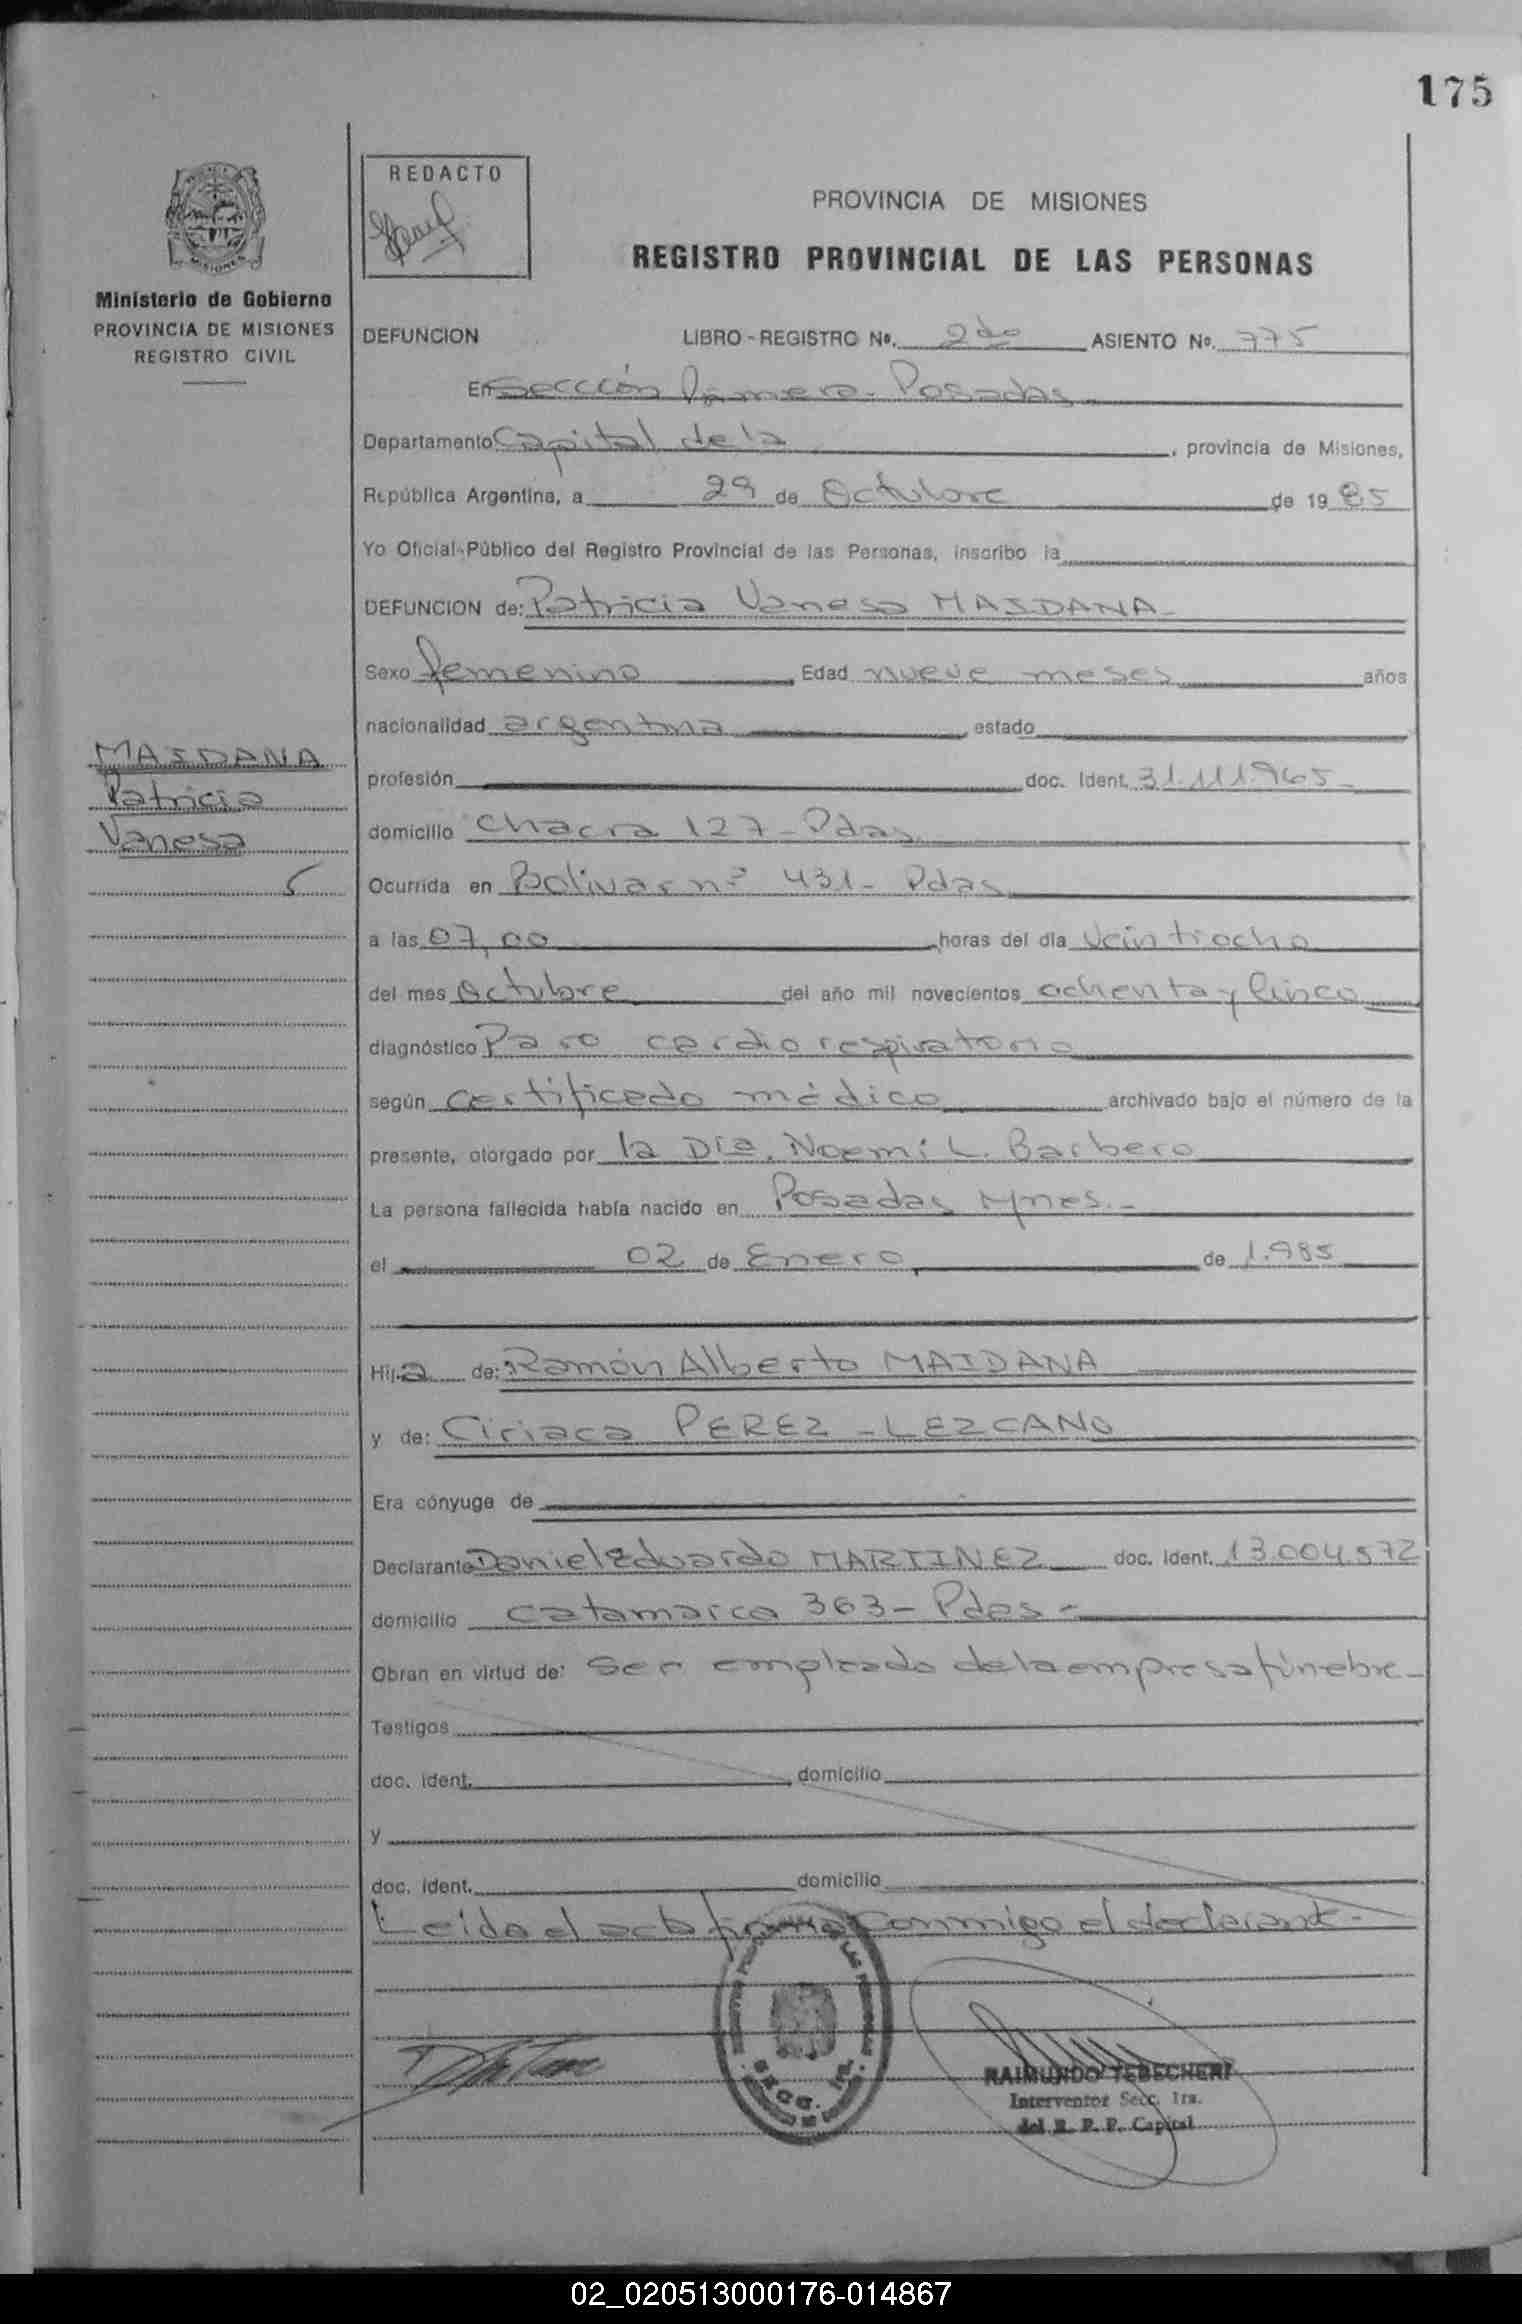 175
REDACTO
PROVINCIA DE MISIONES
REGISTRO PROVINCIAL DE LAS PERSONAS
MISIONES
Ministerio de Gobierno
PROVINCIA DE MISIONES
REGISTRO CIVIL
DEFUNCION LIBRO-REGISTRO Nº. 2do ASIENTO Nº. 775
En Sección Primera - Posadas
Departamento Capital de la , provincia de Misiones,
República Argentina, a 29 de Octubre de 1985
Yo Oficial Público del Registro Provincial de las Personas, inscribo la
DEFUNCION de: Patricia Vanesa MAIDANA
Sexo femenino Edad nueve meses años
nacionalidad argentina estado
MAIDANA
Patricia
Vanesa
profesión doc. Ident. 31.111.965-
domicilio chacra 127 - Pdas
Ocurrida en Bolivar nº 431 - Pdas
a las 07,00 horas del día veintiocho
del mes Octubre del año mil novecientos ochenta y cinco
diagnóstico Paro cardio respiratorio
según certificado médico archivado bajo el número de la
presente, otorgado por la Dra. Noemi L. Barbero
La persona fallecida había nacido en Posadas Mnes.-
el 02 de Enero de 1.985
Hija de: Ramón Alberto MAIDANA
y de: Ciriaca PEREZ - LEZCANO
Era cónyuge de
Declarante Daniel Eduardo MARTINEZ doc. Ident. 13.004.572
domicilio catamarca 363 - Pdas -
Obran en virtud de: Ser empleado de la empresa fúnebre -
Testigos
doc. ident. domicilio
y
doc. ident. domicilio
Leida el acta firma conmigo el declarante -
RAIMUNDO TEBECHERI
Interventor Secc. 1ra.
del R. P. P. Capital
02_020513000176-014867